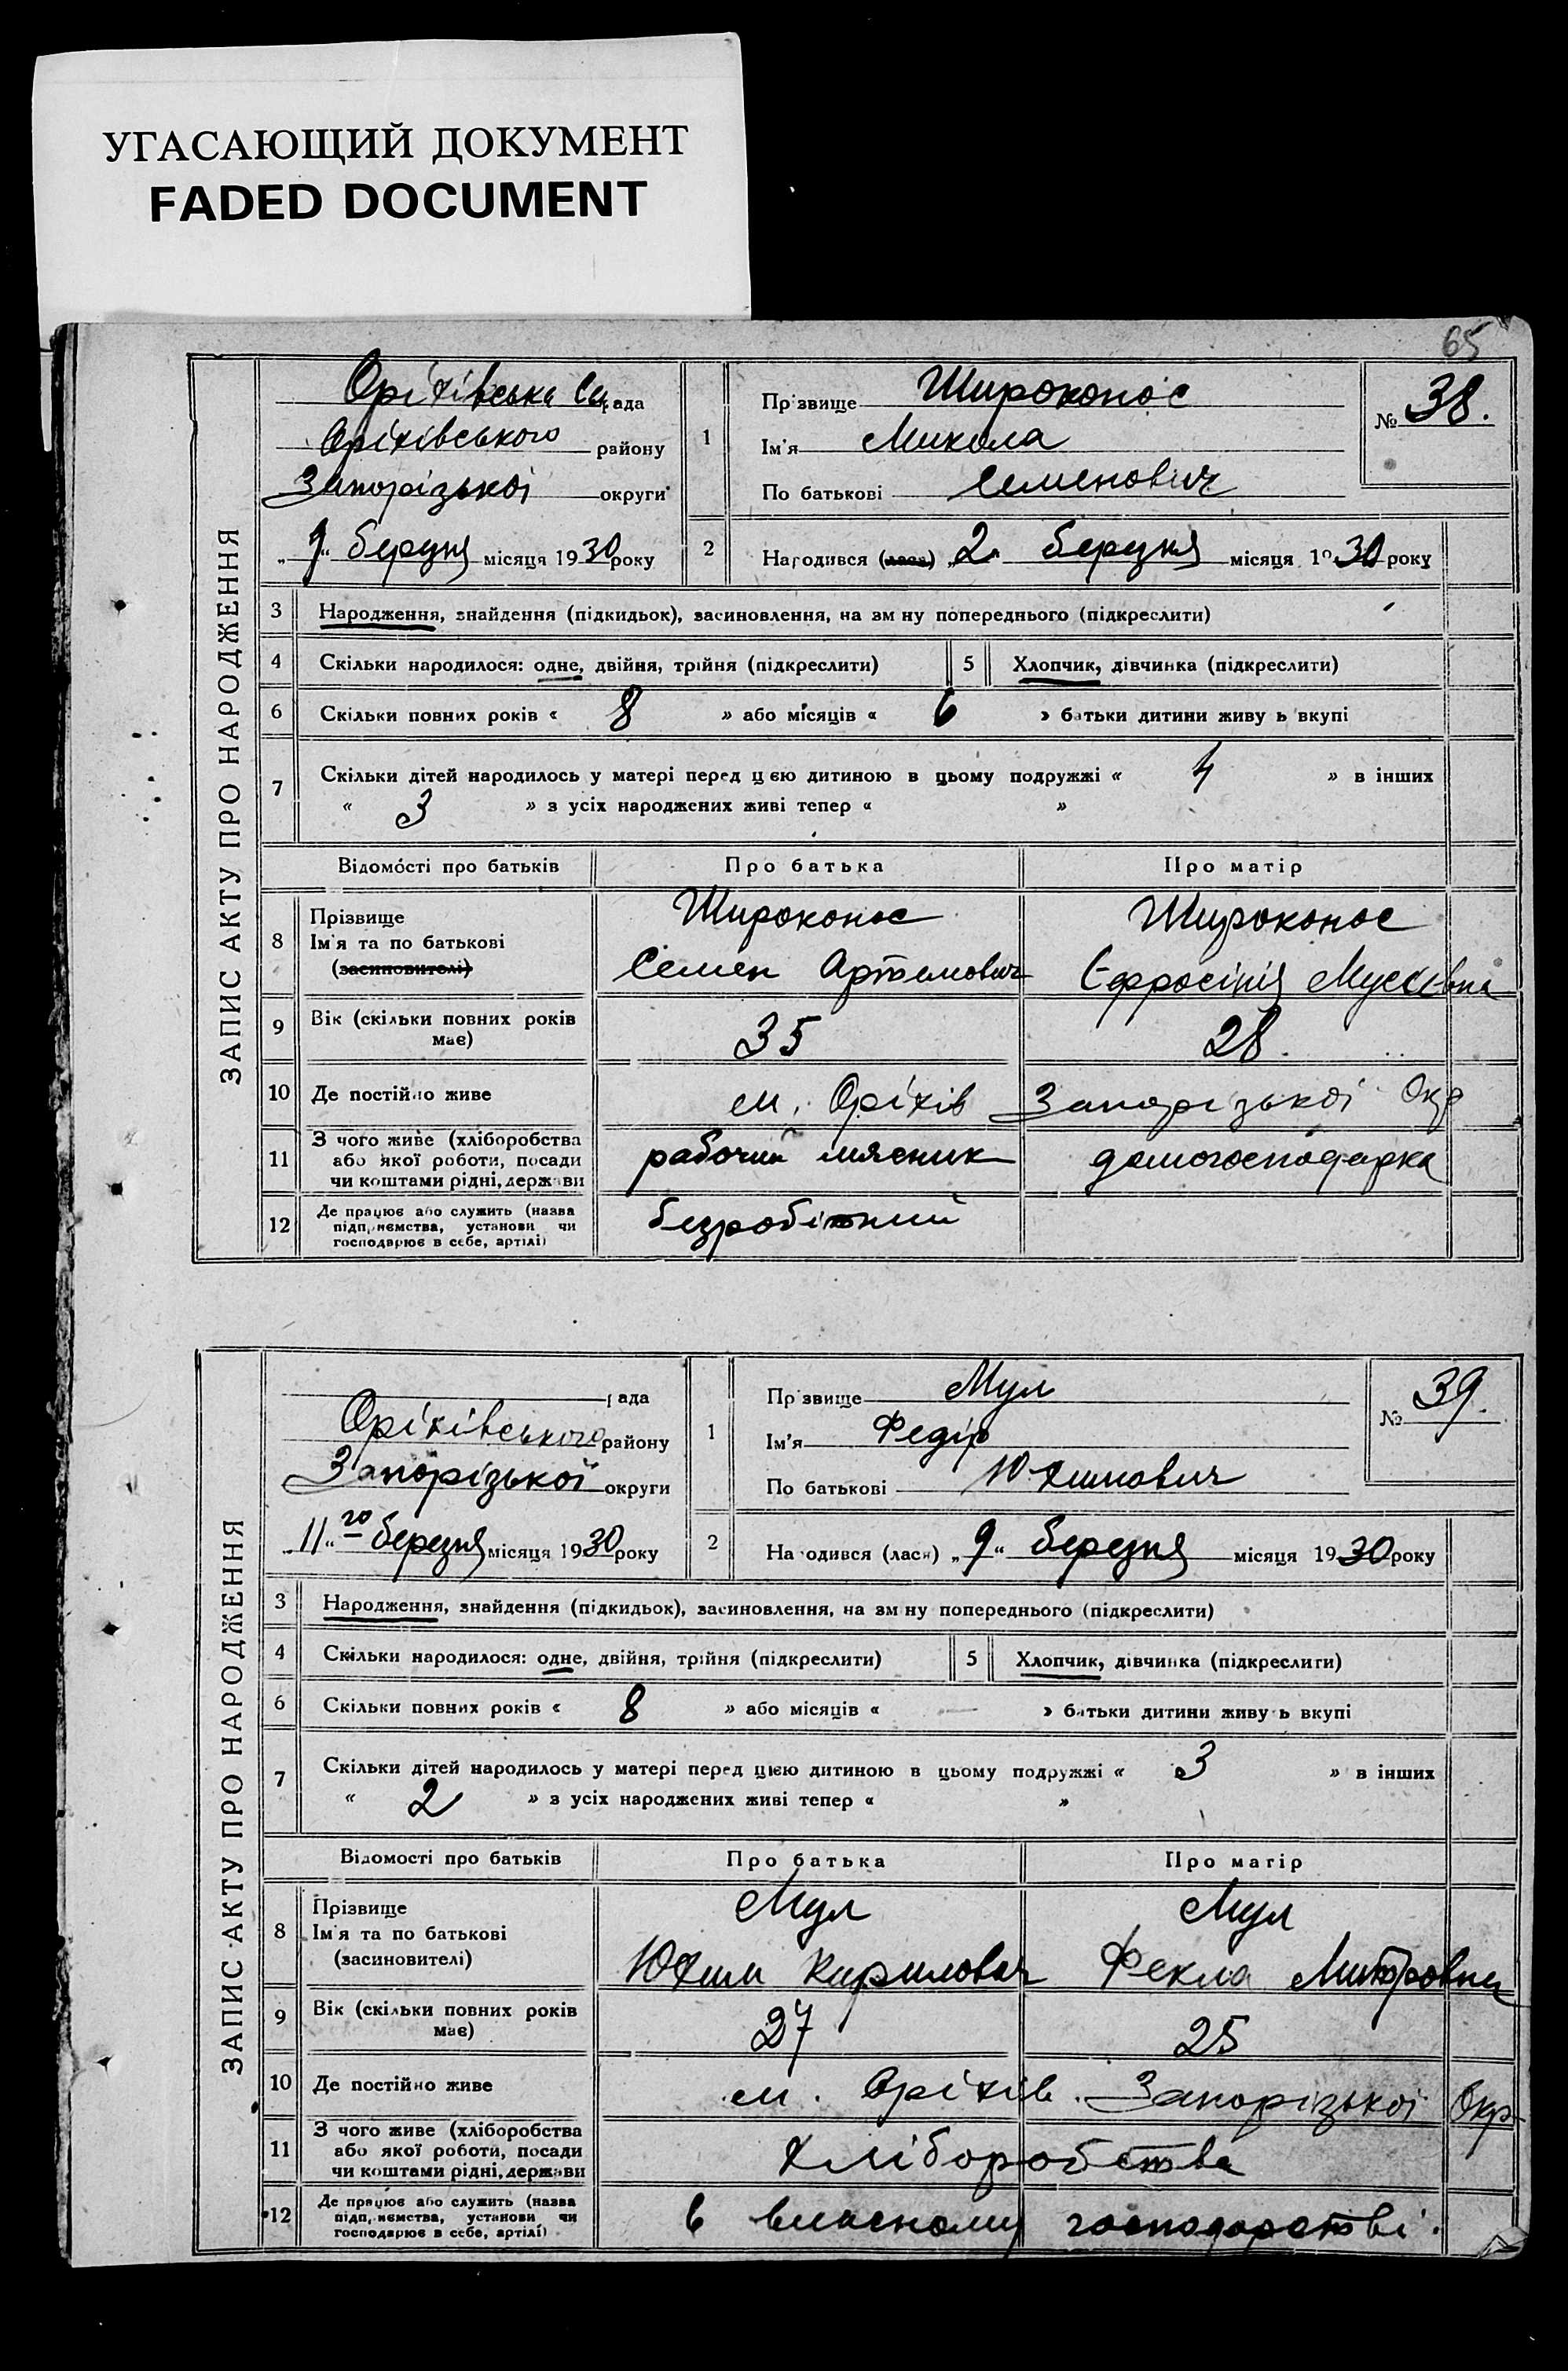 УГАСАЮЩИЙ ДОКУМЕНТ
FADED DOCUMENT
65
ЗАПИС АКТУ ПРО НАРОДЖЕННЯ
Оріхівська рада
Оріхівського району
Запорізької округи
„9“ березня місяця 1930 року
1 Прізвище Широконос
Ім'я Микола
По батькові Семенович
№ 38.
2 Народився (лася) „2“ березня місяця 1930 року
3 Народження, знайдення (підкидьок), засиновлення, на зміну попереднього (підкреслити)
4 Скільки народилося: одне, двійня, трійня (підкреслити) 5 Хлопчик, дівчинка (підкреслити)
6 Скільки повних років « 8 » або місяців « 6 » батьки дитини живуть вкупі
7 Скільки дітей народилось у матері перед цією дитиною в цьому подружжі « 4 » в інших
« 3 » з усіх народжених живі тепер « »
Відомості про батьків Про батька Про матір
8 Прізвище Широконос Широконос
Ім'я та по батькові
(засиновителі) Семен Артемович Єфросінія Мусіївна
9 Вік (скільки повних років має) 35 28.
10 Де постійно живе м. Оріхів Запорізької Окр
11 З чого живе (хліборобства
або якої роботи, посади
чи коштами рідні, держави рабочий мясник домогосподарка
12 Де працює або служить (назва
підприємства, установи чи
господарює в себе, артілі) безробітний
ЗАПИС АКТУ ПРО НАРОДЖЕННЯ
рада
Оріхівського району
Запорізької округи
„11“го березня місяця 1930 року
1 Прізвище Мул
Ім'я Федір
По батькові Юхимович
№ 39.
2 Народився (лася) „9“ березня місяця 1930 року
3 Народження, знайдення (підкидьок), засиновлення, на зміну попереднього (підкреслити)
4 Скільки народилося: одне, двійня, трійня (підкреслити) 5 Хлопчик, дівчинка (підкреслити)
6 Скільки повних років « 8 » або місяців « — » батьки дитини живуть вкупі
7 Скільки дітей народилось у матері перед цією дитиною в цьому подружжі « 3 » в інших
« 2 » з усіх народжених живі тепер « »
Відомості про батьків Про батька Про матір
8 Прізвище Мул Мул
Ім'я та по батькові
(засиновителі) Юхим Кирилович Фекла Митровна
9 Вік (скільки повних років має) 27 25
10 Де постійно живе м. Оріхів. Запорізької Окр
11 З чого живе (хліборобства
або якої роботи, посади
чи коштами рідні, держави хліборобства
12 Де працює або служить (назва
підприємства, установи чи
господарює в себе, артілі) в власному господарстві.